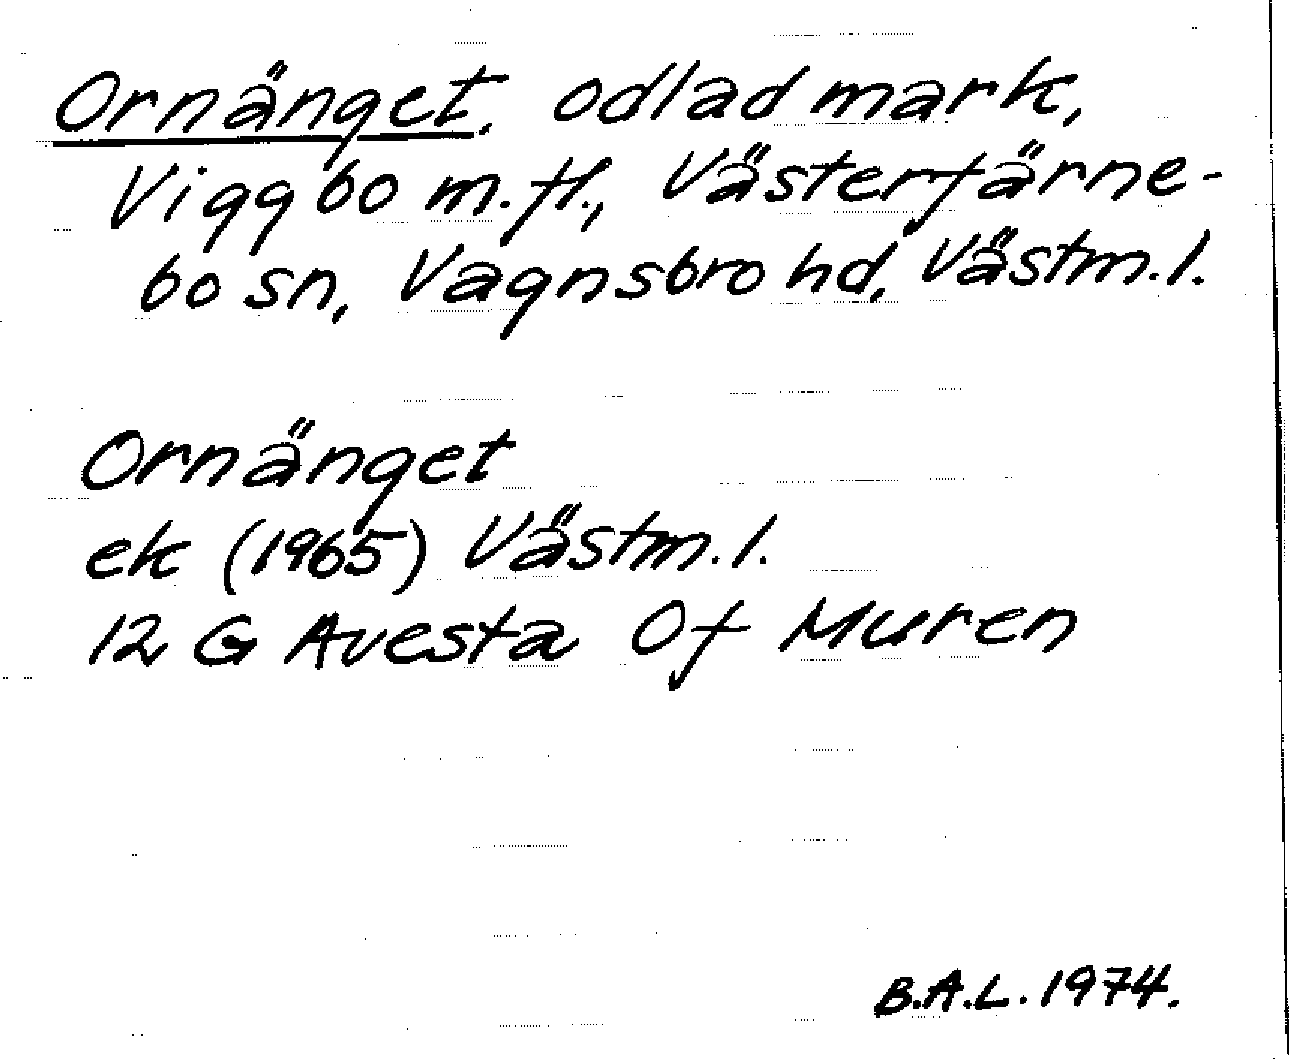 Ornänget, odlad mark,
Viggbo m.fl., Västerfärne-
bo sn, Vagnsbro hd, Västm.l.
Ornänget
ek (1965) Västm.l.
12 G Avesta Of Muren
B.A.L. 1974.